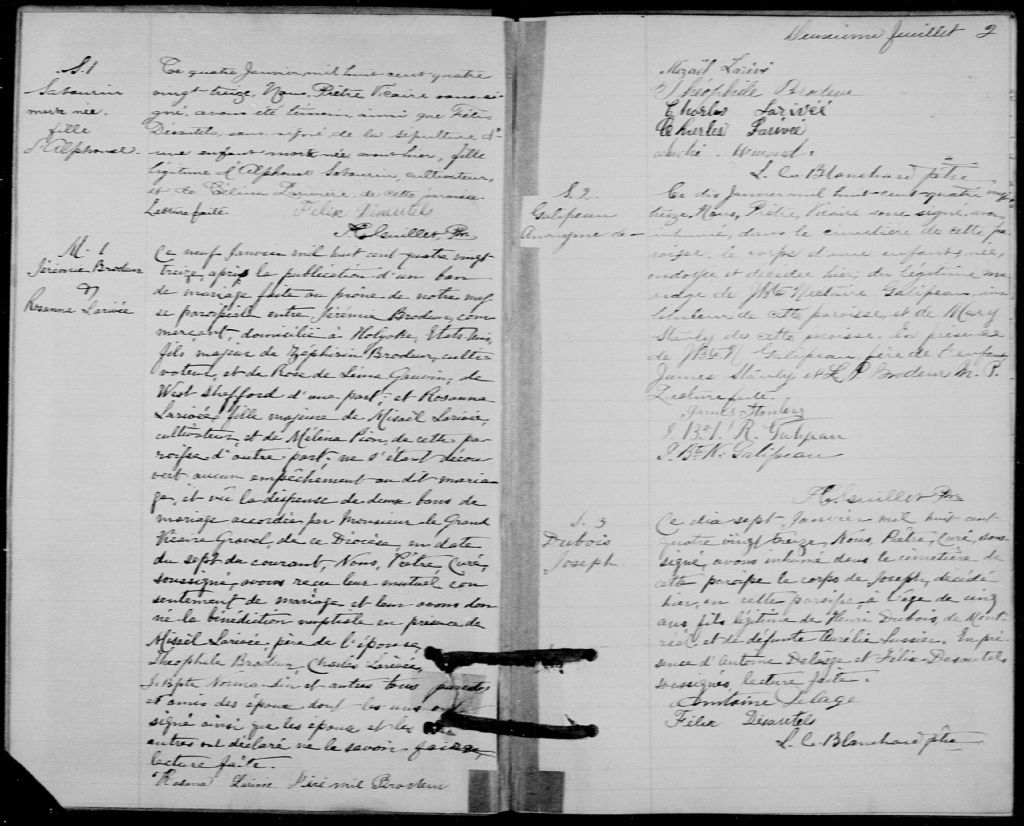 S. 1
Sabourin
mort-née.
fille
d'Alphonse.
Ce quatre Janvier mil huit cent quatre
vingt treize, Nous, Prêtre, Vicaire sous-si-
gné, avons été témoin, ainsi que Félix
Désautels, sous signé de la sépulture d'u-
ne enfant mort-née avant hier, fille
légitime d'Alphonse Sabourin, cultivateur,
et de Célina Larivière, de cette paroisse
Lecture faite. Félix Désautels
Ptre
M. 1
Jérémie Brodeur
&
Rosanna Larivée
Ce neuf Janvier mil huit cent quatre vingt
treize, après la publication d'un ban
de mariage faite au prône de notre mes
se paroissiale entre Jérémie Brodeur, com
merçant, domicilié à Holyoke, Etats Unis,
fils majeur de Zéphirin Brodeur, culti
vateur, et de Rose de Lima Gauvin, de
West Shefford d'une part; et Rosanna
Larivée, fille majeure de Misaël Larivée,
cultivateur, et de Mélina Pion, de cette pa
roisse d'autre part, ne s'étant décou
vert aucun empêchement au dit maria
ge, et vû la dispense de deux bans de
mariage accordée par Monsieur le Grand
Vicaire Gravel, de ce Diocèse, en date
du sept du courant, Nous, Prêtre, Curé,
soussigné, avons reçu leur mutuel con
sentement de mariage et leur avons don
né la bénédiction nuptiale en présence de
Misaël Larivée, père de l'épouse,
Théophile Brodeur, Charles Larivée,
J. Bpte Normandin et autres tous parents
et amis des époux dont les uns ont
signé ainsi que les époux et les
autres ont déclaré ne le savoir faire,
lecture faite.
Rosana Larivée Jérémie Brodeur
Deuxième feuillet 2
Mizaël Larivé
Théophile Brodeur
Charles Larivéé
Charles Larivée
L. C. Blanchard ptre
S. 2.
Galipeau
Anonyme de
Ce dix Janvier mil huit-cent-quatre vingt
treize, Nous, Prêtre, Vicaire sous signé, avons
inhumé, dans le cimetière de cette pa-
roisse, le corps d'une enfant, née,
ondoyée et décédée hier, du légitime ma-
riage de J. Bte Nectaire Galipeau,
de cette paroisse, et de Mary
Stanly de cette paroisse. En présence
de J. Bte N. Galipeau, père de l'enfant
James Stanly et L. P. Brodeur M. P.
Lecture faite.
James Stanley
J. Bte R. Galipeau
J. Bte N. Galipeau
Ptre
S. 3
Dubois
Joseph
Ce dix sept Janvier mil huit cent
quatre vingt treize, Nous, Prêtre, Curé, sous-
signé, avons inhumé dans le cimetière de
cette paroisse le corps de Joseph, décédé
hier, en cette paroisse, à l'âge de cinq
ans fils légitime de Henri Dubois, de Mont
réal et de défunte Aurélie Lussier. En pré
sence d'Antoine Delâge et Félix Désautels
soussignés, lecture faite.
Antoine Delage
Félix Désautels
L. C. Blanchard ptre